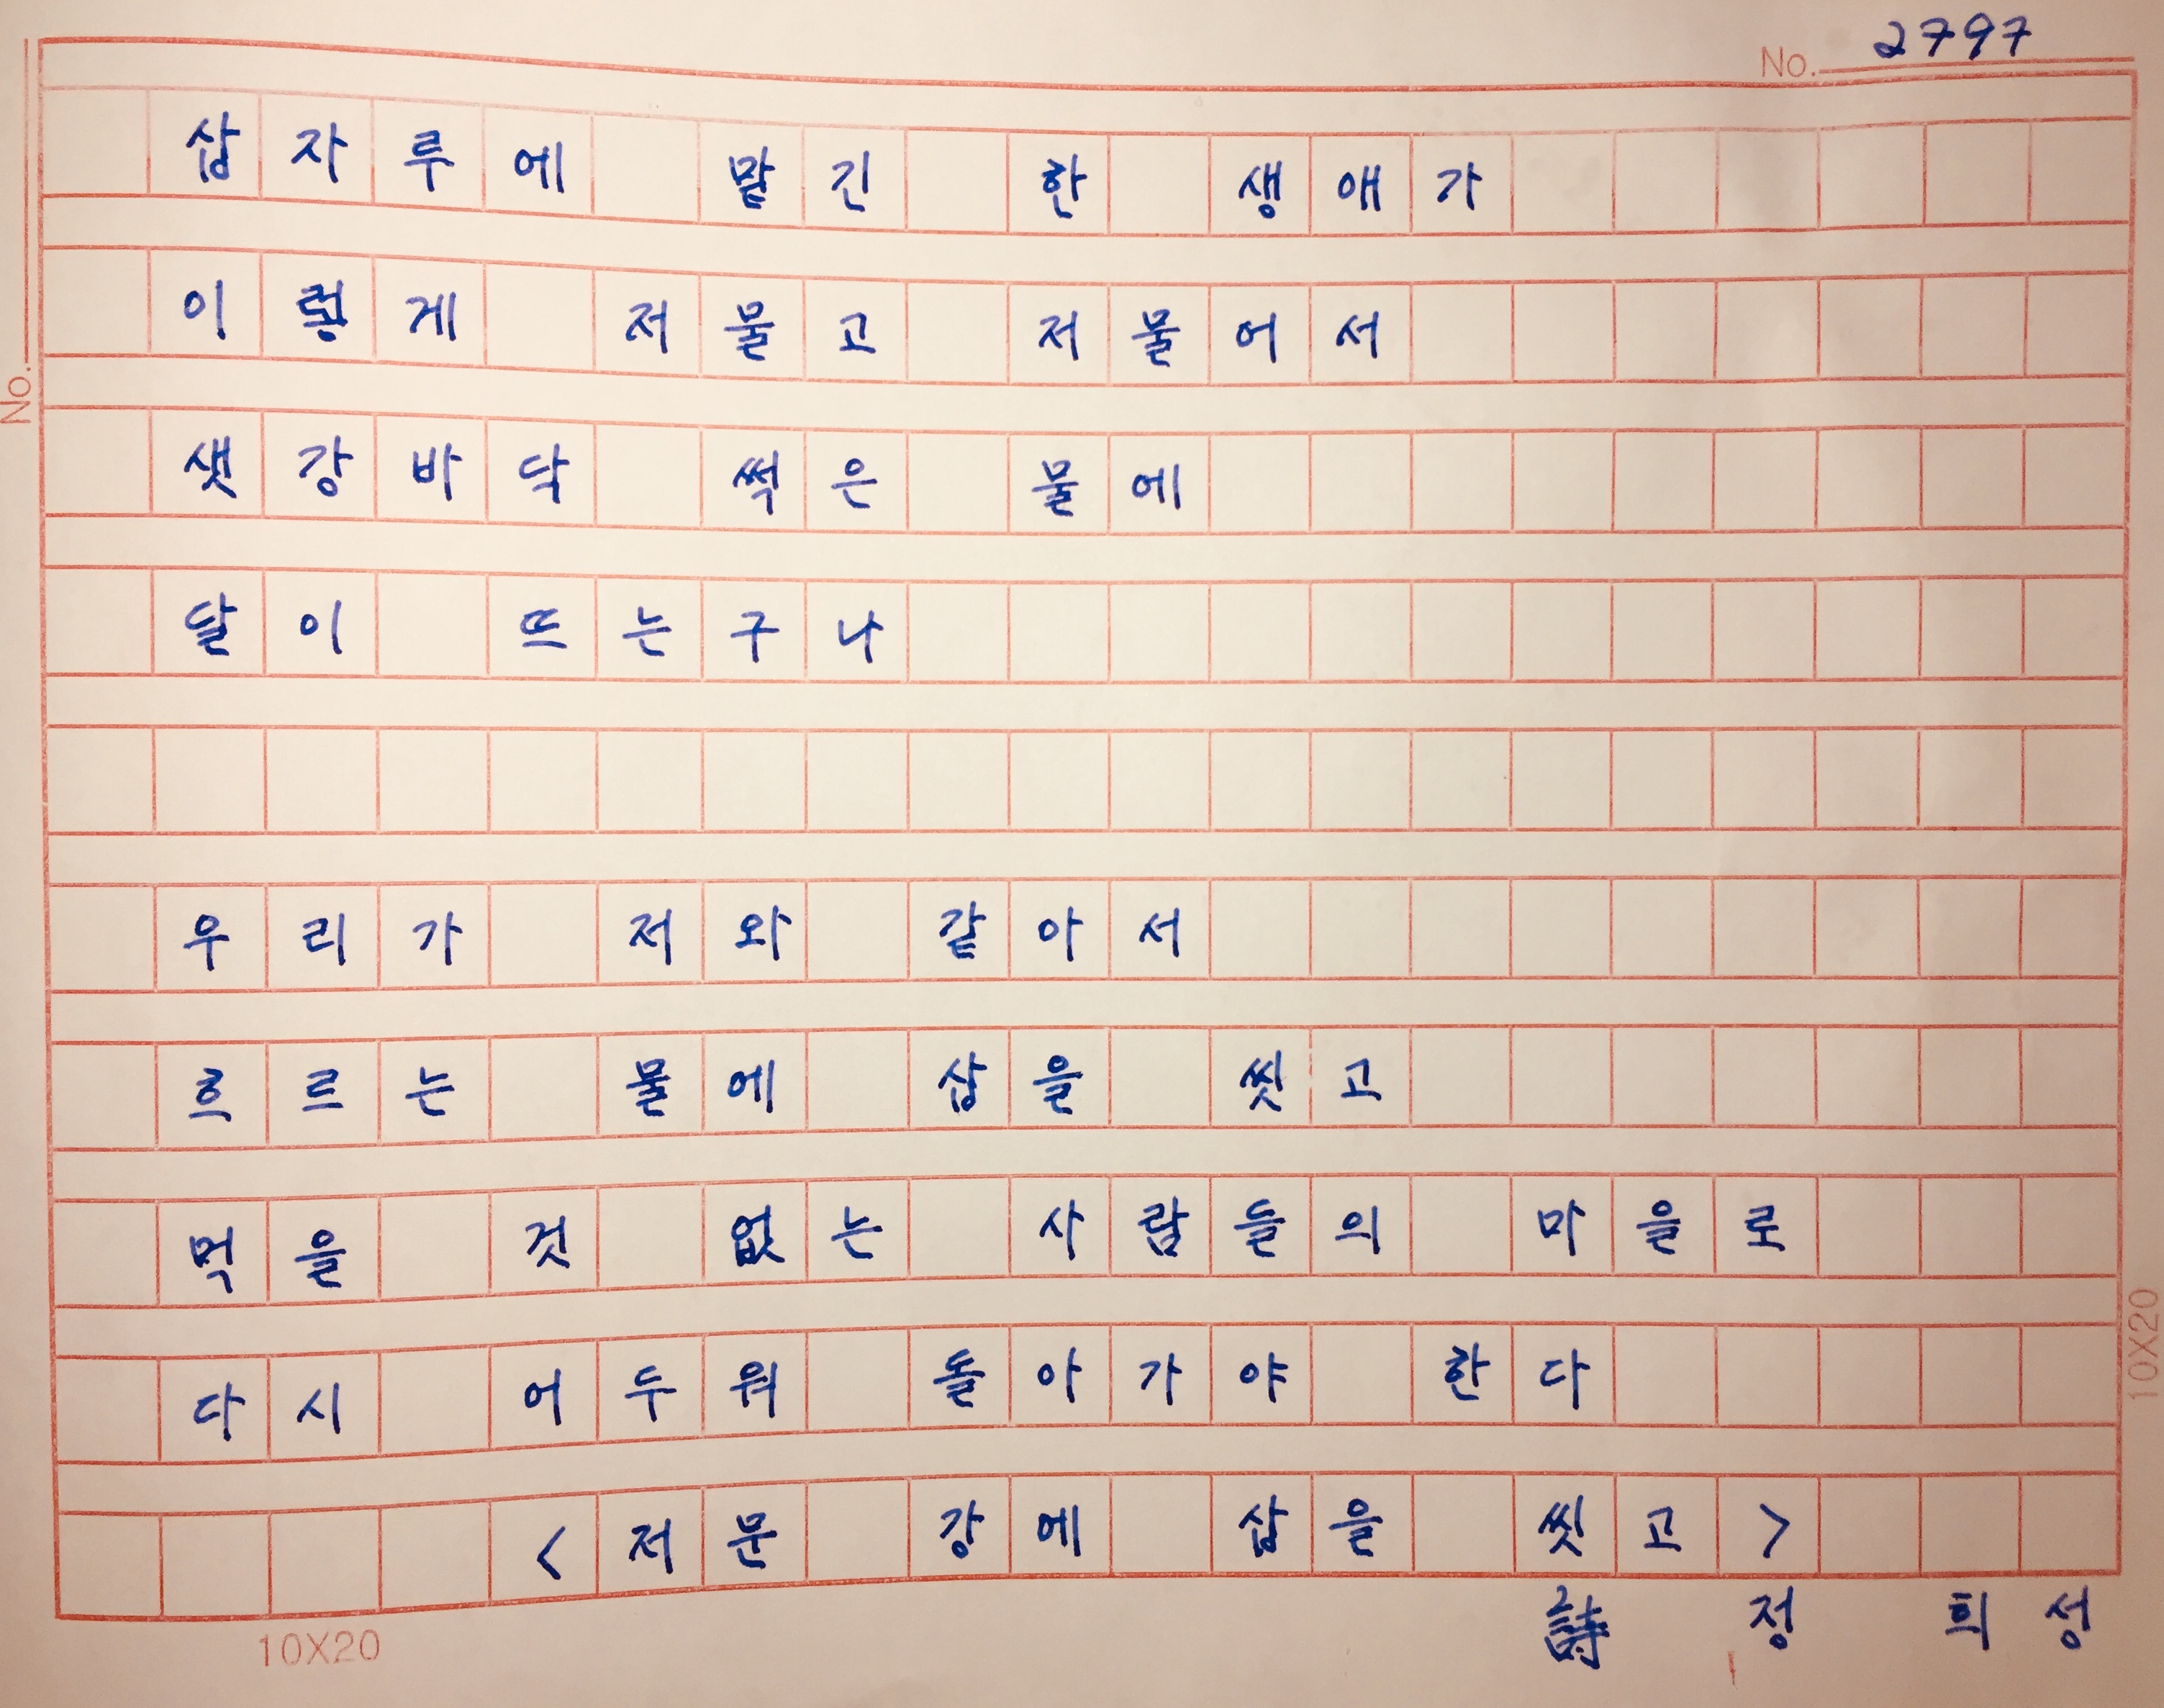 No. 2797
삽자루에 맡긴 한 생애가
이렇게 저물고 저물어서
샛강바닥 썩은 물에
달이 뜨는구나
우리가 저와 같아서
흐르는 물에 삽을 씻고
먹을 것 없는 사람들의 마을로
다시 어두워 돌아가야 한다
<저문 강에 삽을 씻고>
詩 정 희성
No.
10X20
10X20